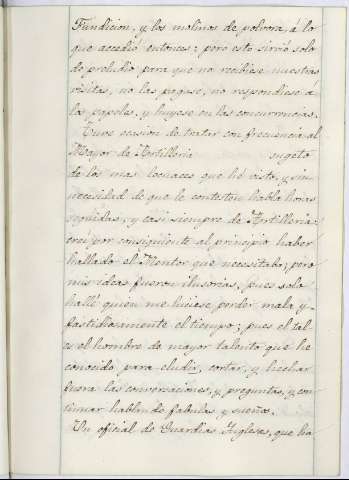 Fundicion, y los molinos de polvora, á lo
que accedió entonces: pero esto sirvió solo
de preludio para que no recibiese nuestras
visitas, no las pagase, no respondiese a
los papeles, y huyese en las concurrencias.
Tuve ocasion de tratar con frecuencia al
Mayor de Artilleria sugeto
de los mas locuaces que hé visto, y sin
necesidad de que le contesten habla horas
seguidas, y casi siempre de Artilleria:
creí por consiguiente al principio haber
hallado el Mentor que necesitaba; pero
mis ideas fueron ilusorias, pues solo
hallé quien me hiciese perder mala y
fastidiosamente el tiempo; pues el tal
es el hombre de mayor talento que he
conocido para eludir, cortar, y hechar
fuera las conversaciones, y preguntas, y con
tinuar hablando fabulas y sueños.
Un oficial de Guardias Inglesas, que ha